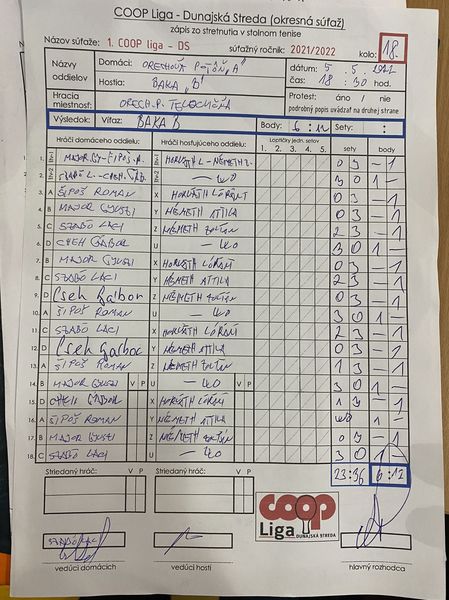 COOP Liga - Dunajská Streda (okresná súťaž)
zápis zo stretnutia v stolnom tenise
Názov súťaže: 1. COOP liga - DS súťažný ročník: 2021/2022 kolo: 18.
Názvy oddielov
Domáci: ORECHOVÁ POTÔŇ "A"
Hostia: BAKA "B"
dátum: 5. 5.
čas: 18 : 30 hod.
Hracia miestnosť: ORECH. P. TELOCVIČŇA
Protest: áno / nie
podrobný popis uvádzať na druhej strane
Výsledok: Víťaz: BAKA B Body: 6 : 12 Sety: :
Hráči domáceho oddielu Hráči hosťujúceho oddielu Loptičky jedn. setov sety body
1. 2. 3. 4. 5.
1. štv-1 03 - 1
2. štv-2 - WO 30 1 -
3. A ŠIPOŠ ROMAN X HORVÁTH LÓRÁNT 03 - 1
4. B MAJOR Y NÉMETH ATTILA 03 - 1
5. C SZABÓ LACI Z NÉMETH ZOLTÁN 23 - 1
6. D CSEH GÁBOR U - WO 30 1 -
7. B MAJOR X HORVÁTH LÓRÁNT 03 - 1
8. C SZABÓ LACI Y NÉMETH ATTILA 23 - 1
9. D Cseh Gábor Z NÉMETH ZOLTÁN 03 - 1
10. A ŠIPOŠ ROMAN U - WO 30 1 -
11. C SZABÓ LACI X HORVÁTH LÓRÁNT 23 - 1
12. D Cseh Gábor Y NÉMETH ATTILA 03 - 1
13. A ŠIPOŠ ROMAN Z NÉMETH ZOLTÁN 1
14. B MAJOR V P U - WO V P 30 1 -
15. D CSEH GÁBOR X HORVÁTH LÓRÁNT 13 - 1
16. A ŠIPOŠ ROMAN Y NÉMETH ATTILA 1 -
17. B MAJOR Z NÉMETH ZOLTÁN 03 - 1
18. C SZABÓ LACI U - WO 30 1 -
Striedaný hráč: V P Striedaný hráč: V P 23:36 6:12
coop
Liga DUNAJSKÁ STREDA
SZABÓ LACI
vedúci domácich vedúci hostí hlavný rozhodca